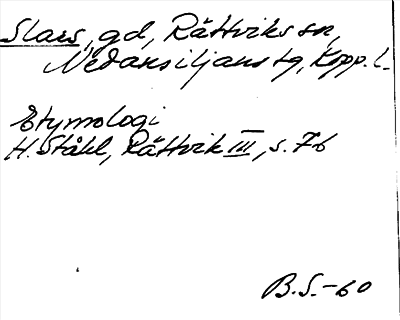 Slars, gd, Rättviks sn,
Nedansiljans tg, Kopp. l.
Etymologi
H. Ståhl, Rättvik III, s. 76
B.S.-60